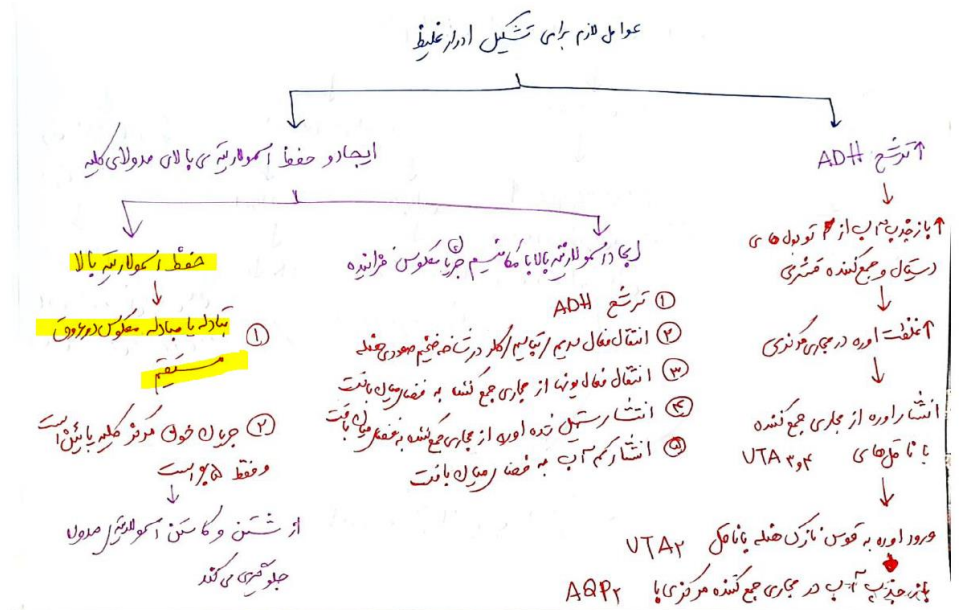 عوامل لازم برای تشکیل ادرار غلیظ
↑ ترشح ADH
↑ بازجذب آب از توبول های
دیستال و جمع کننده قشری
↑ غلظت اوره در مجاری
انتشار اوره از مجاری جمع کننده
با ناقل های UTA ۳و۴
ورود اوره به قوس نازک هنله با ناقل UTA۲
بازجذب آب در مجاری جمع کننده مرکزی با AQP۲
ایجاد و حفظ اسمولاریته ی بالای مدولای کلیه
ایجاد اسمولاریته بالا با مکانیسم جریان معکوس فزاینده
① ترشح ADH
② انتقال فعال سدیم / پتاسیم / کلر در شاخه ضخیم صعودی هنله
③ انتقال فعال یونها از مجاری جمع کننده به فضای میان بافت
④ انتشار تسهیل شده اوره از مجاری جمع کننده به فضای میان بافت
⑤ انتشار کم آب به فضای میان بافت
حفظ اسمولاریته بالا
① تبادله یا مبادله معکوس در عروق
مستقیم
② جریان خون مرکز کلیه پایین است
و فقط ۵٪ است
از شستن و کاستن اسمولاریته مدولا
جلوگیری می کند